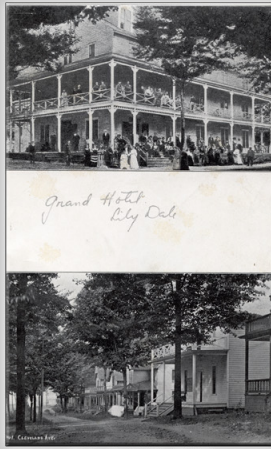 Grand Hotel
Lily Dale
Cleveland Ave.